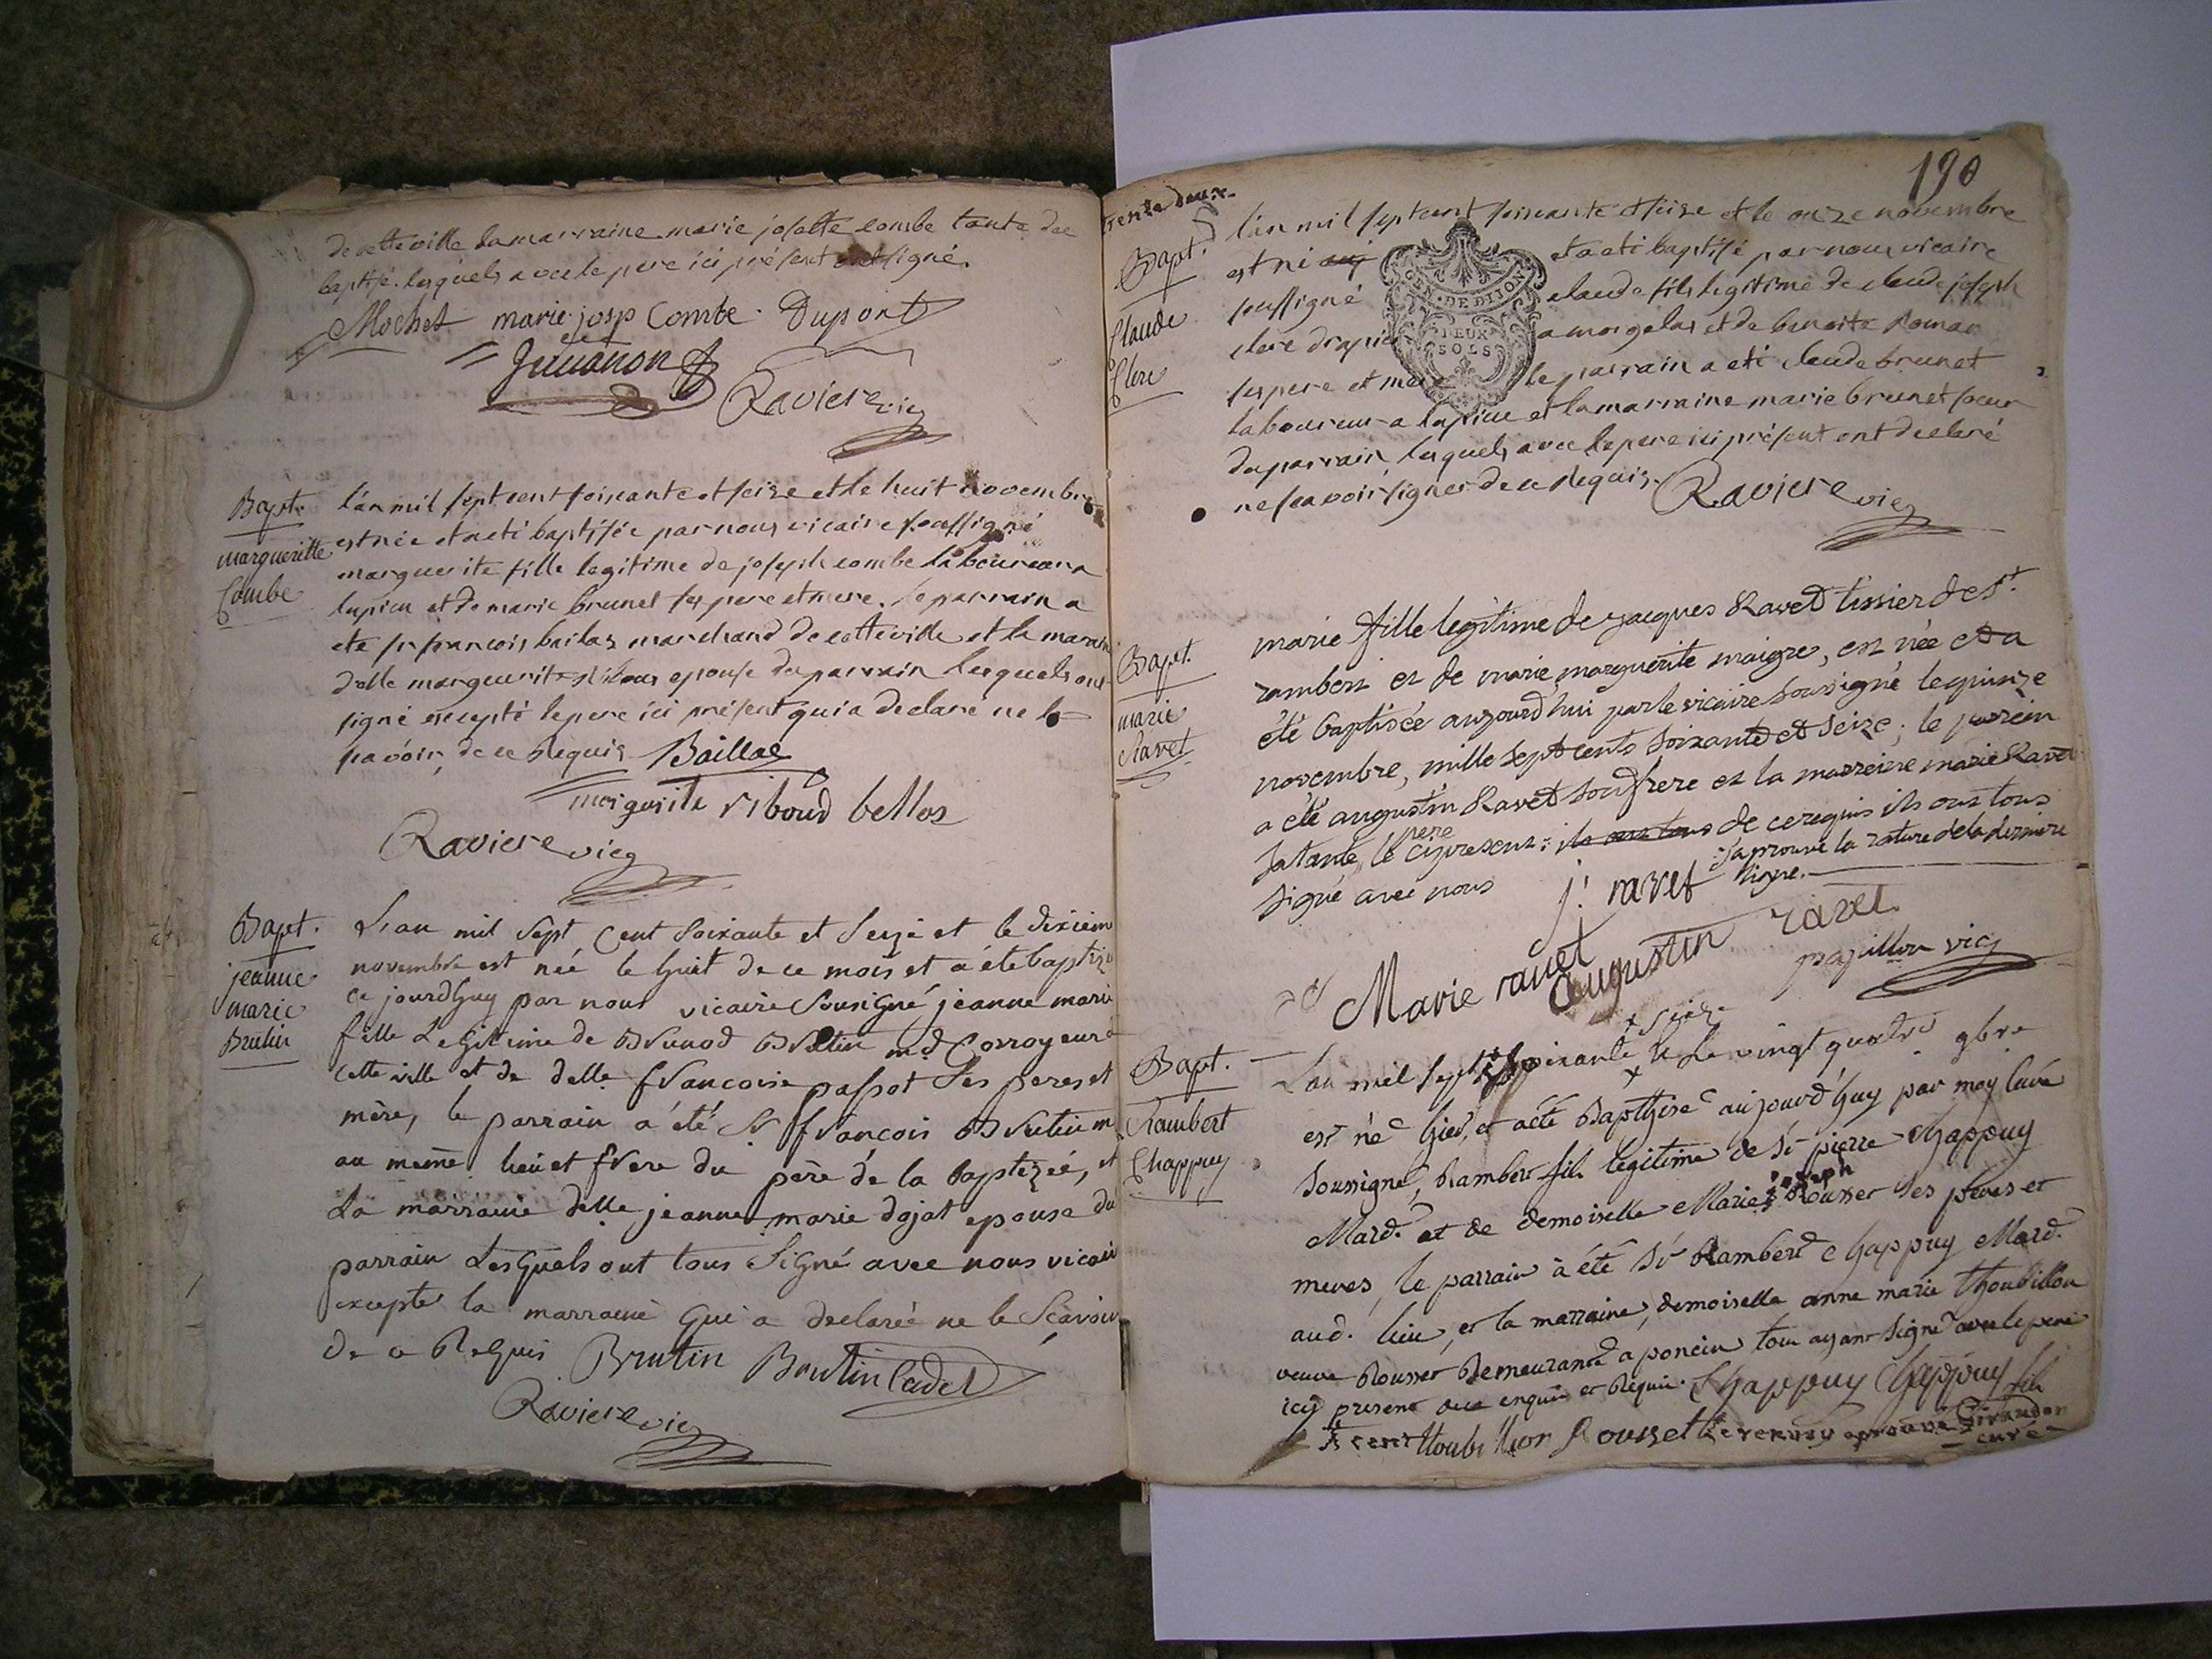 de cette ville la marraine marie josette combe tante du
baptisé. lesquels avec le pere ici présent ont signé.
Mochet marie josp Combe Dupont
Juvanon
Raviere vic
Bapt.
margueritte
Combe
l'an mil sept cent soixante et seize et le huit novembre
est née et a eté baptisée par nous vicaire soussigné
marguerite fille legitime de joseph combe laboureur a
lupieu et de marie brunet ses pere et mere. le parrain a
ete sr francois baillas marchand de cette ville et la marain
delle margueurite ribous epouse du parrain lesquels ont
signé excepté le pere ici présent qui a declaré ne le
savoir, de ce Requis Baillas
morguerite riboud bellos
Raviere vic
Bapt.
jeanne
marie
Brutin
L'an mil sept Cent soixante et seize et le dixiem
novembre est née le huit de ce mois et a été baptizé
ce jourdhuy par nous vicaire sousigné jeanne marie
fille Legitime de Brunod Brutin md Corroyeur a
cette ville et de delle francoise passot ses peres et
mère, le parrain a été Sr françois Brutin m
au meme lieu et frere du père de la baptezéé, et
La marraine delle jeanne marie dojat epouse du
parrain Lesquels ont tous Signé avec nous vicair
excepte la marraine qui a declarée ne le Scavoir
de ce Requis Brutin Brutin Cadet
Raviere vic
190
trente deux
Bapt.
Claude
Clere
l'an mil sept cent soixante et seize et le onze novembre
est né auj et a eté baptisé par nous vicaire
soussigné claude fils legitime de claude joseph
clere drapier a morgelas et de benoite Roman
ses pere et mere le parrain a eté claude brunet
laboureur a lupieu et la marraine marie brunet soeur
du parrain, lesquels avec le pere ici présent ont declaré
ne scavoir signer de ce Requis. Raviere vic
GEN. DE DIJON
DEUX
SOLS
Bapt.
marie
Ravet
marie fille legitime de jacques Ravet tissier de St
rambert et de marie marguerite maigre, est née et a
été baptisée aujourd'hui par le vicaire soussigné le quinze
novembre, mille sept cents soixante et seize; le parrein
a été augustin Ravet son frere et la marreine marie Ravet
sa tante, le pere cipresent: ils ont tous de ce requis ils ont tous
signé avec nous j'aprouve la rature de la derniere
ligne.
j. ravet
Marie ravet
augustin ravet
papillon vic
Bapt.
Rambert
Chappuy
+ Seize
L'an mil sept cent soixante + et Le vingt quatre 9bre
est né hier, et a été Bapthisé aujourd'huy par moy Curé
soussigné, Rambert fils legitime de Sr pierre Chappuy
joseph
Mard. et de demoiselle Marie Rousset ses peres et
meres, le parrain à été Sr Rambert Chappuy Mard.
aud. lieu, et la marraine, demoiselle anne marie thoubillon
veuve Rousset Demeurante a poncin tous ayant signé avec le pere
icy present de ce enquis et Requis. Chappuy Chappuy fils
le cent thoubillon Rousset le renvoy aprouvé Giraudon
curé